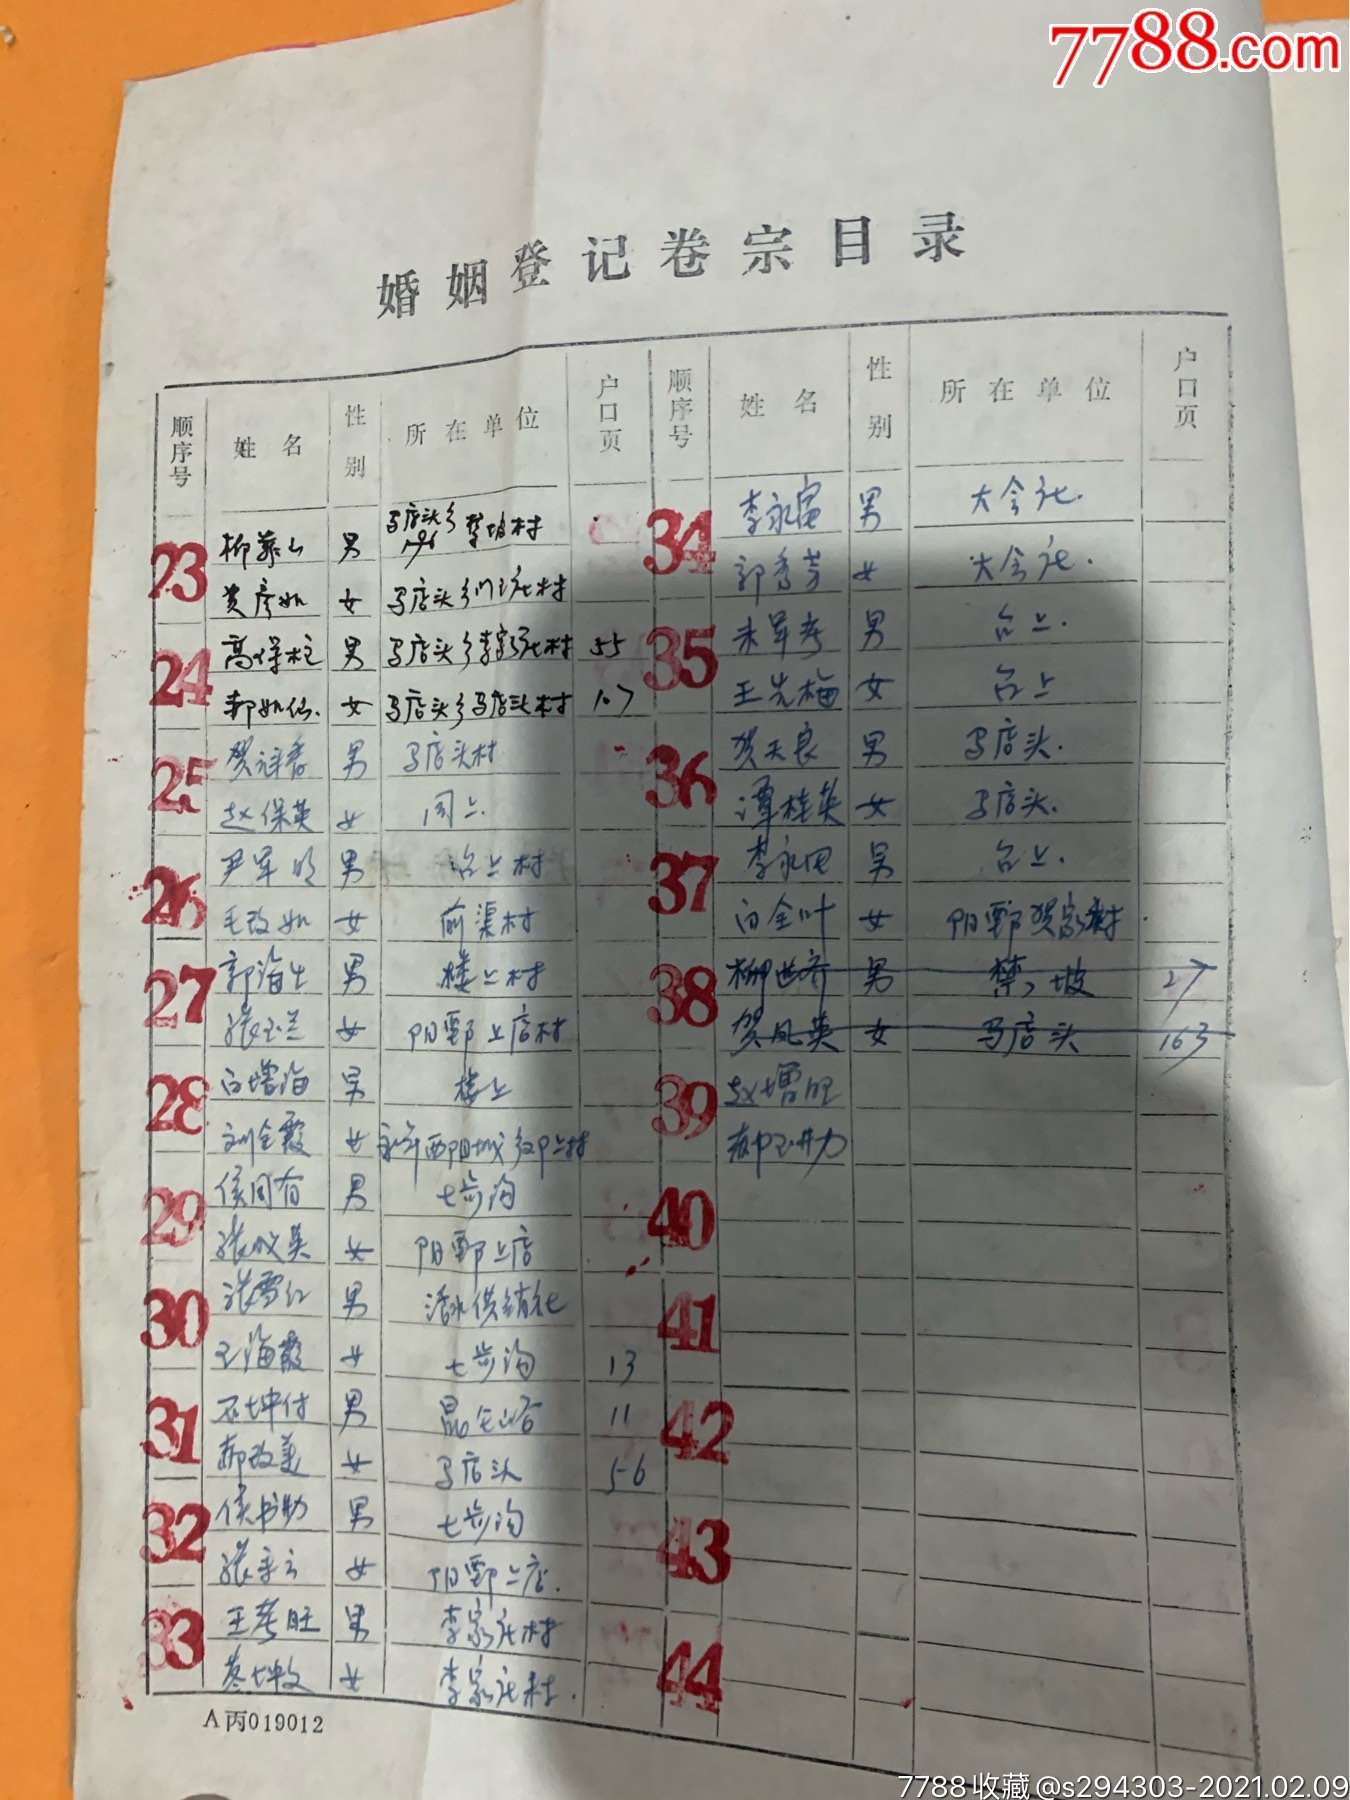 7788.com
婚姻登记卷宗目录
顺序号 姓名 性别 所在单位 户口页 顺序号 姓名 性别 所在单位 户口页
23 柳 山 男 马店头乡 坡村
女 马店头乡 村
24 高保柱 男 马店头乡李家庄村 55
郭如仙 女 马店头乡马店头村 107
25 贺 男 马店头村
赵保英 女 同上
26 尹军 男 台上村
毛改如 女 前渠村
27 郭海生 男 楼上村
张玉兰 女 阳鄄上店村
28 白增海 男 楼上
刘全霞 女 永年西阳城乡 上村
29 侯同有 男 七步沟
张 英 女 阳鄄上店
30 张雪红 男 活水供销社
王海霞 女 七步沟 13
31 石坤付 男 昆仑峪 11
郝改美 女 马店头 56
32 侯书助 男 七步沟
张 女 阳鄄上店.
33 王孝旺 男 李家庄村
女 李家庄村.
34 李永富 男 大会社.
郭秀芳 女 大会社.
35 男 台上.
王先梅 女 台上
36 贺天良 男 马店头.
谭桂英 女 马店头.
37 李永田 男 台上.
白全叶 女 阳鄄贺家村.
38 柳世齐 男 禁坡 27
贺凤英 女 马店头 163
39 赵增旺
40
41
42
43
44
A丙019012
7788收藏@s294303-2021.02.09